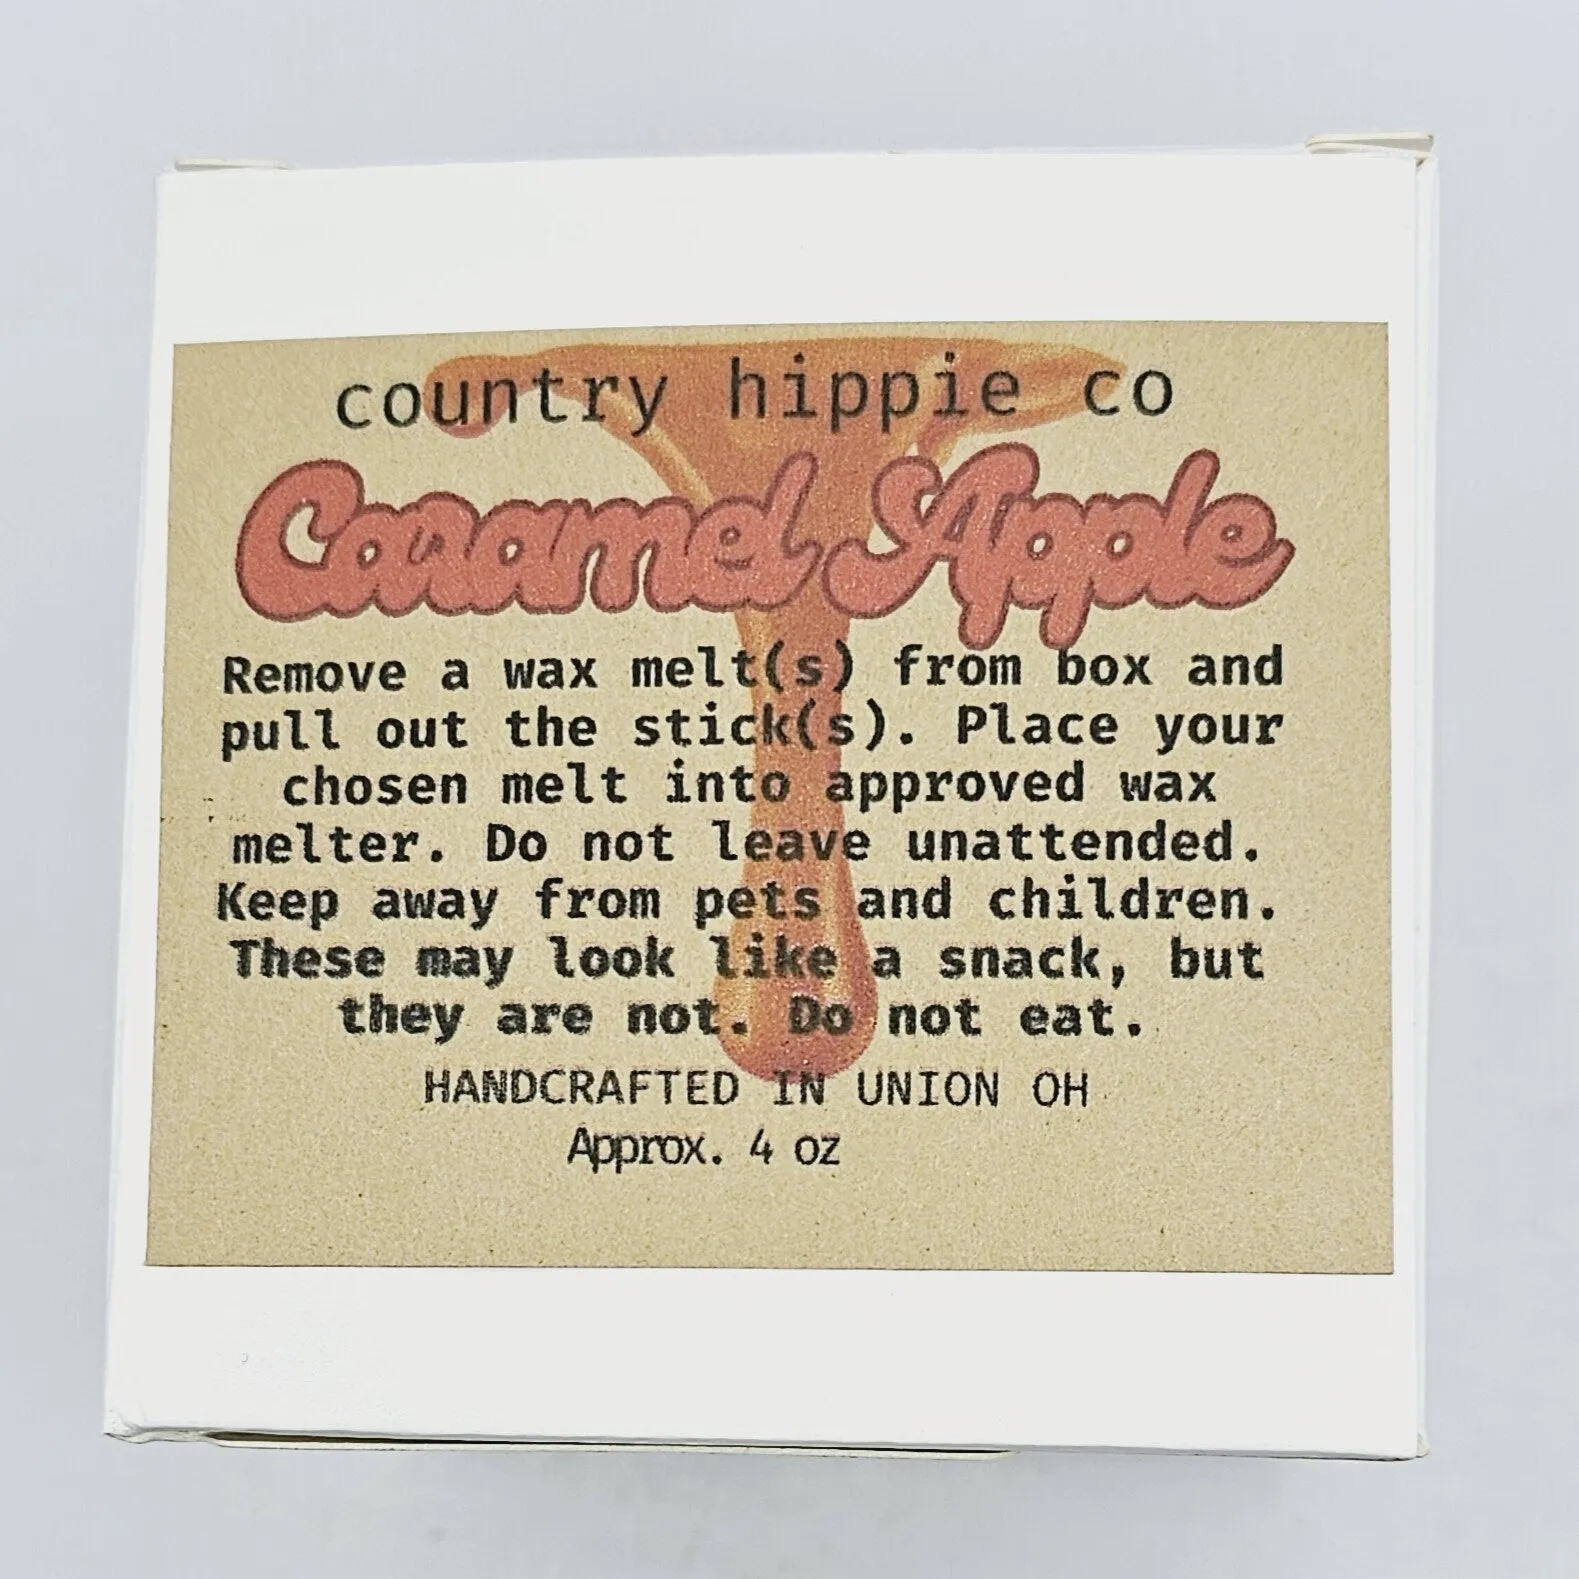 country hippie co
Caramel Apple
Remove a wax melt(s) from box and
pull out the stick(s). Place your
chosen melt into approved wax
melter. Do not leave unattended.
Keep away from pets and children.
These may look like a snack, but
they are not. Do not eat.
HANDCRAFTED IN UNION OH
Approx. 4 oz